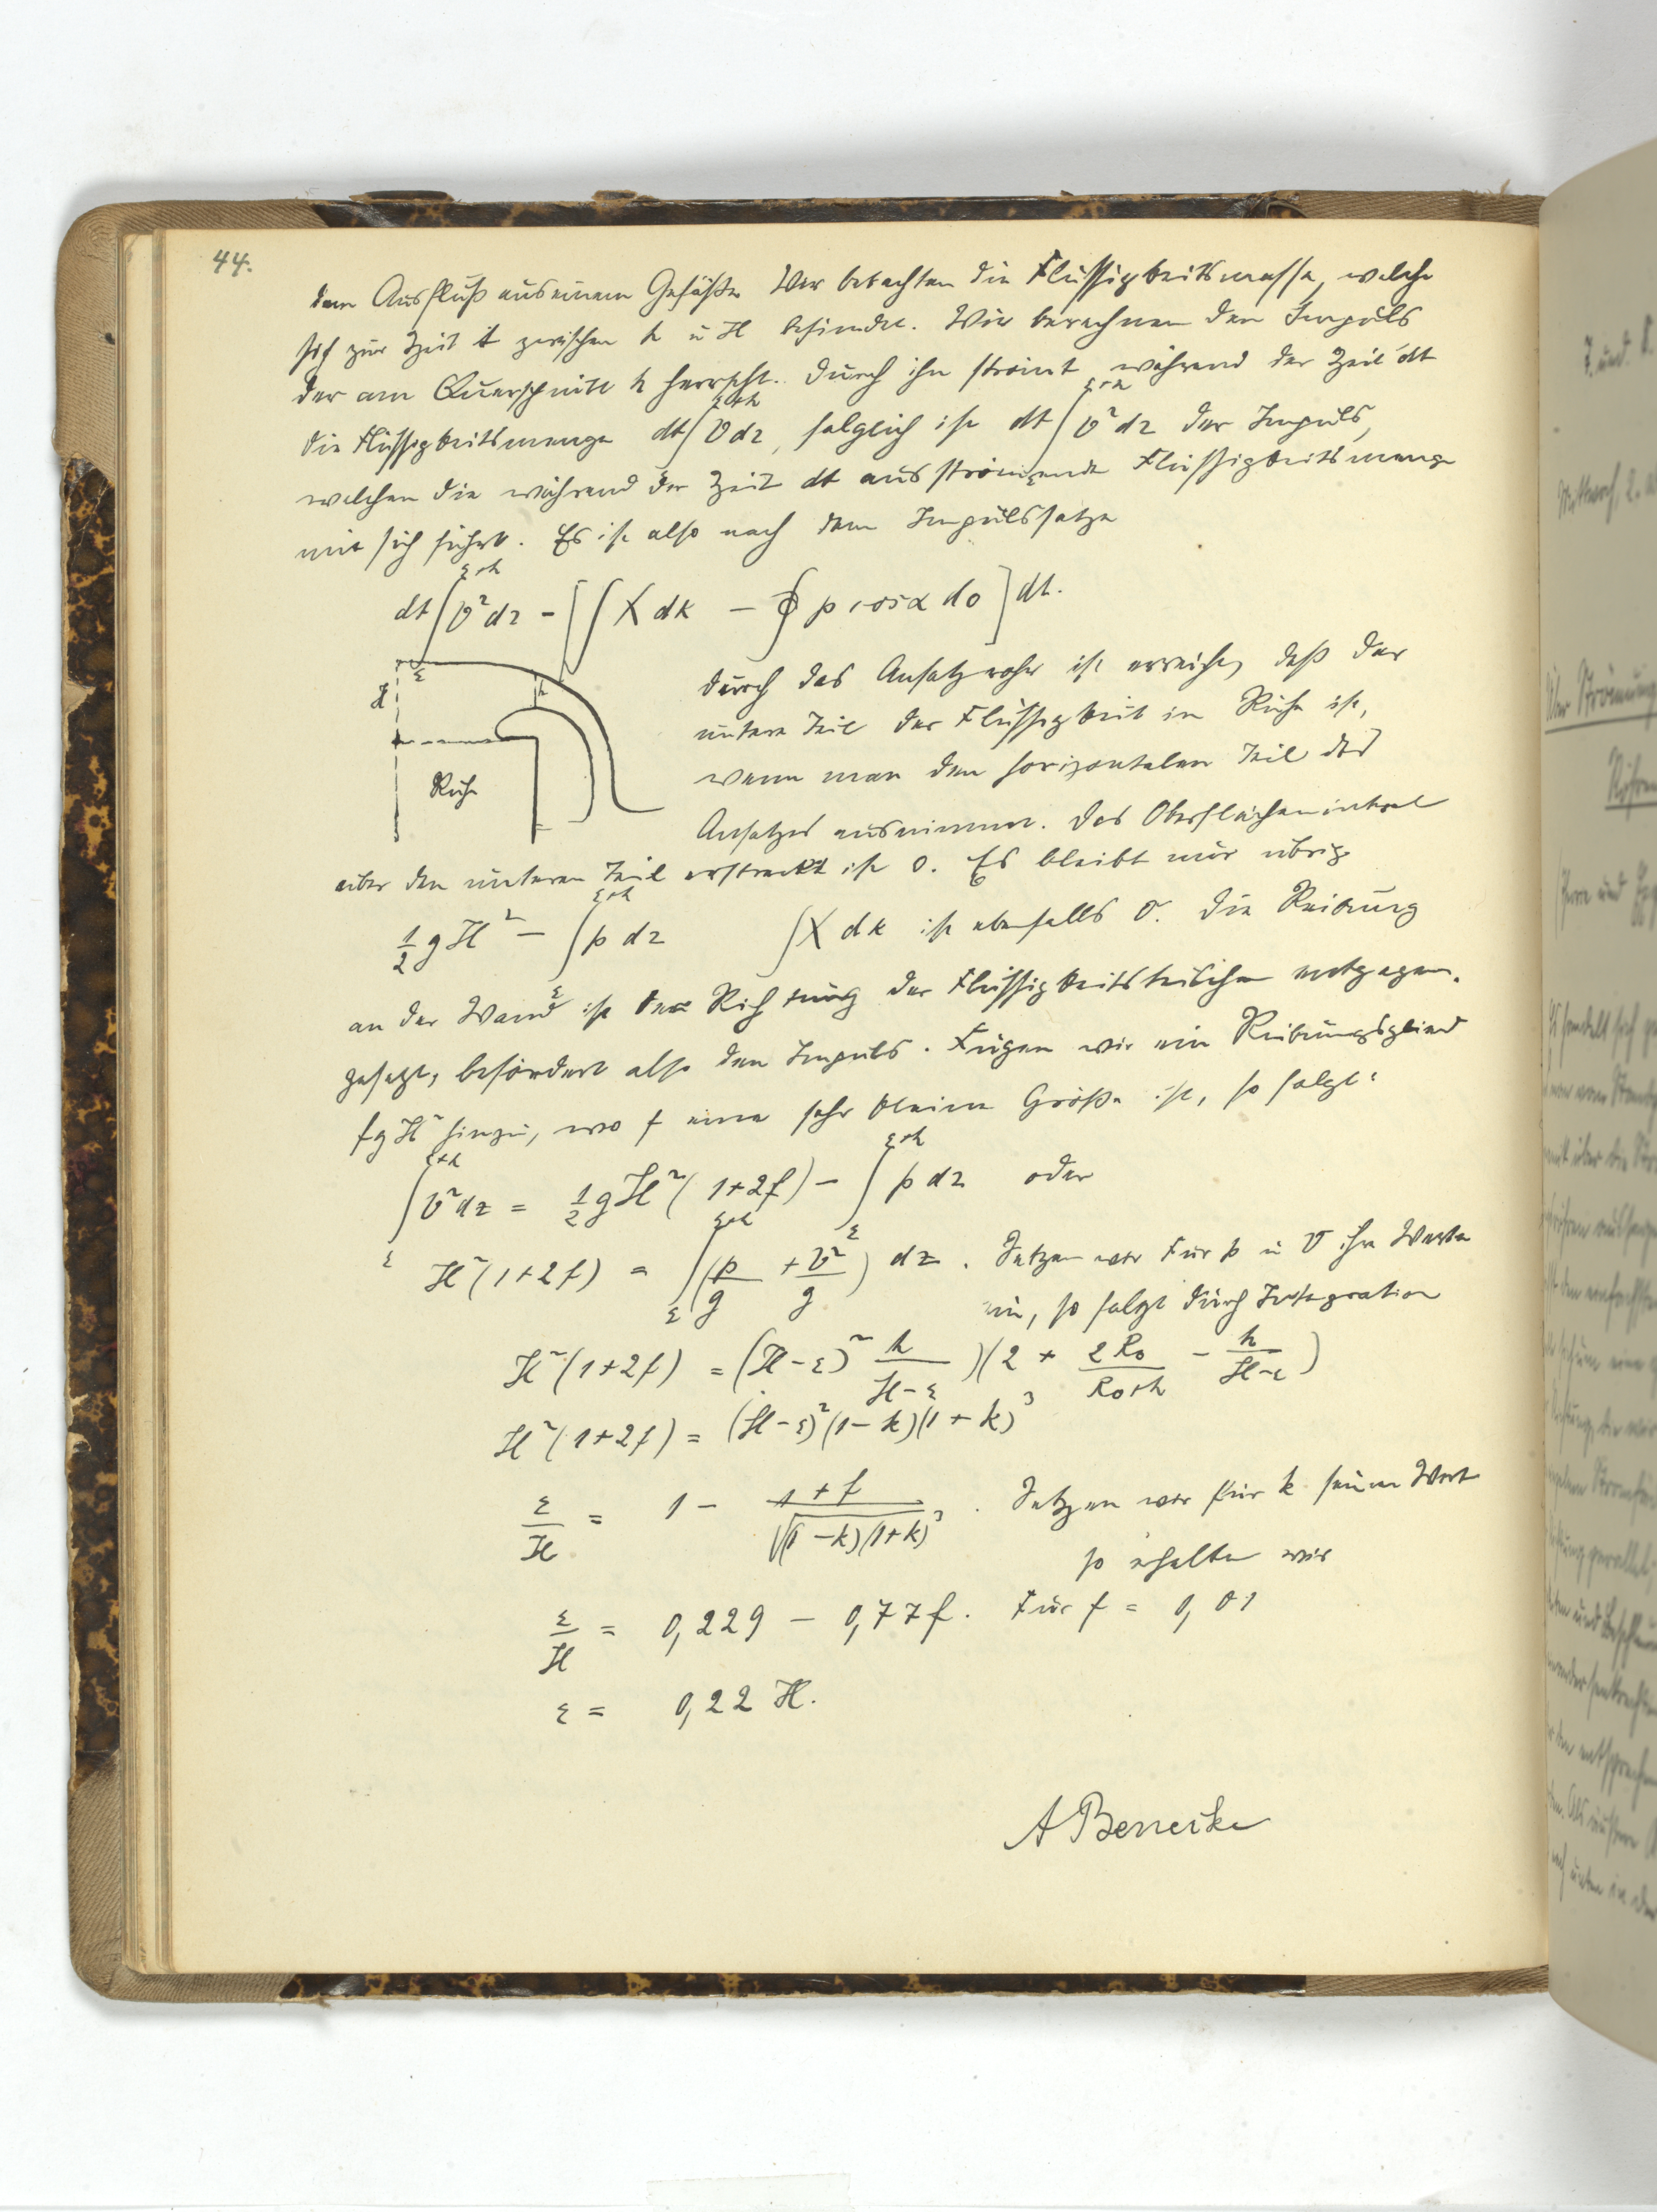 44.
dem Ausfluß aus einem Gefäße. Wir betrachten die Flüssigkeitsmasse, welche
sich zur Zeit t zwischen h u H befindet. Wir berechnen den Impuls
der am Querschnitt h herrscht. Durch ihn strömt während der Zeit dt
die Flüssigkeitsmenge dt ∫_ε^{ε+h} v dz, folglich ist dt ∫_ε^{ε+h} v² dz der Impuls,
welchen die während der Zeit dt ausströmende Flüssigkeitsmenge
mit sich führt. Es ist also nach dem Impulssatze
dt ∫_ε^{ε+h} v² dz - [∫ X dk - ∮ p cos α do] dt.
Durch das Ansatzrohr ist erreicht, daß der
untere Teil der Flüssigkeit in Ruhe ist,
wenn man den horizontalen Teil des
Ansatzes ausnimmt. Das Oberflächenintegral
H ε h
Ruhe
über den unteren Teil erstreckt ist 0. Es bleibt nur übrig
1/2 g H² - ∫_ε^{ε+h} p dz ∫ X dk ist ebenfalls 0. Die Reibung
an der Wand ist der Richtung der Flüssigkeitsteilchen entgegen-
gesetzt, befördert also den Impuls. Fügen wir ein Reibungsglied
f g H² hinzu, wo f eine sehr kleine Größe ist, so folgt:
∫_ε^{ε+h} v² dz = 1/2 g H² (1+2f) - ∫_ε^{ε+h} p dz oder
H² (1+2f) = ∫_ε^{ε+h} (p/g + v²/g) dz. Setzen wir für p u v ihre Werte
ein, so folgt durch Integration
H² (1+2f) = (H-ε)² h/(H-ε) )(2 + 2R₀/(R₀+h) - h/(H-ε))
H² (1+2f) = (H-ε)² (1-k)(1+k)³
ε/H = 1 - (1+f)/√((1-k)(1+k)³). Setzen wir für k seinen Wert
so erhalten wir
ε/H = 0,229 - 0,77f. Für f = 0,01
ε = 0,22 H.
A Bennecke